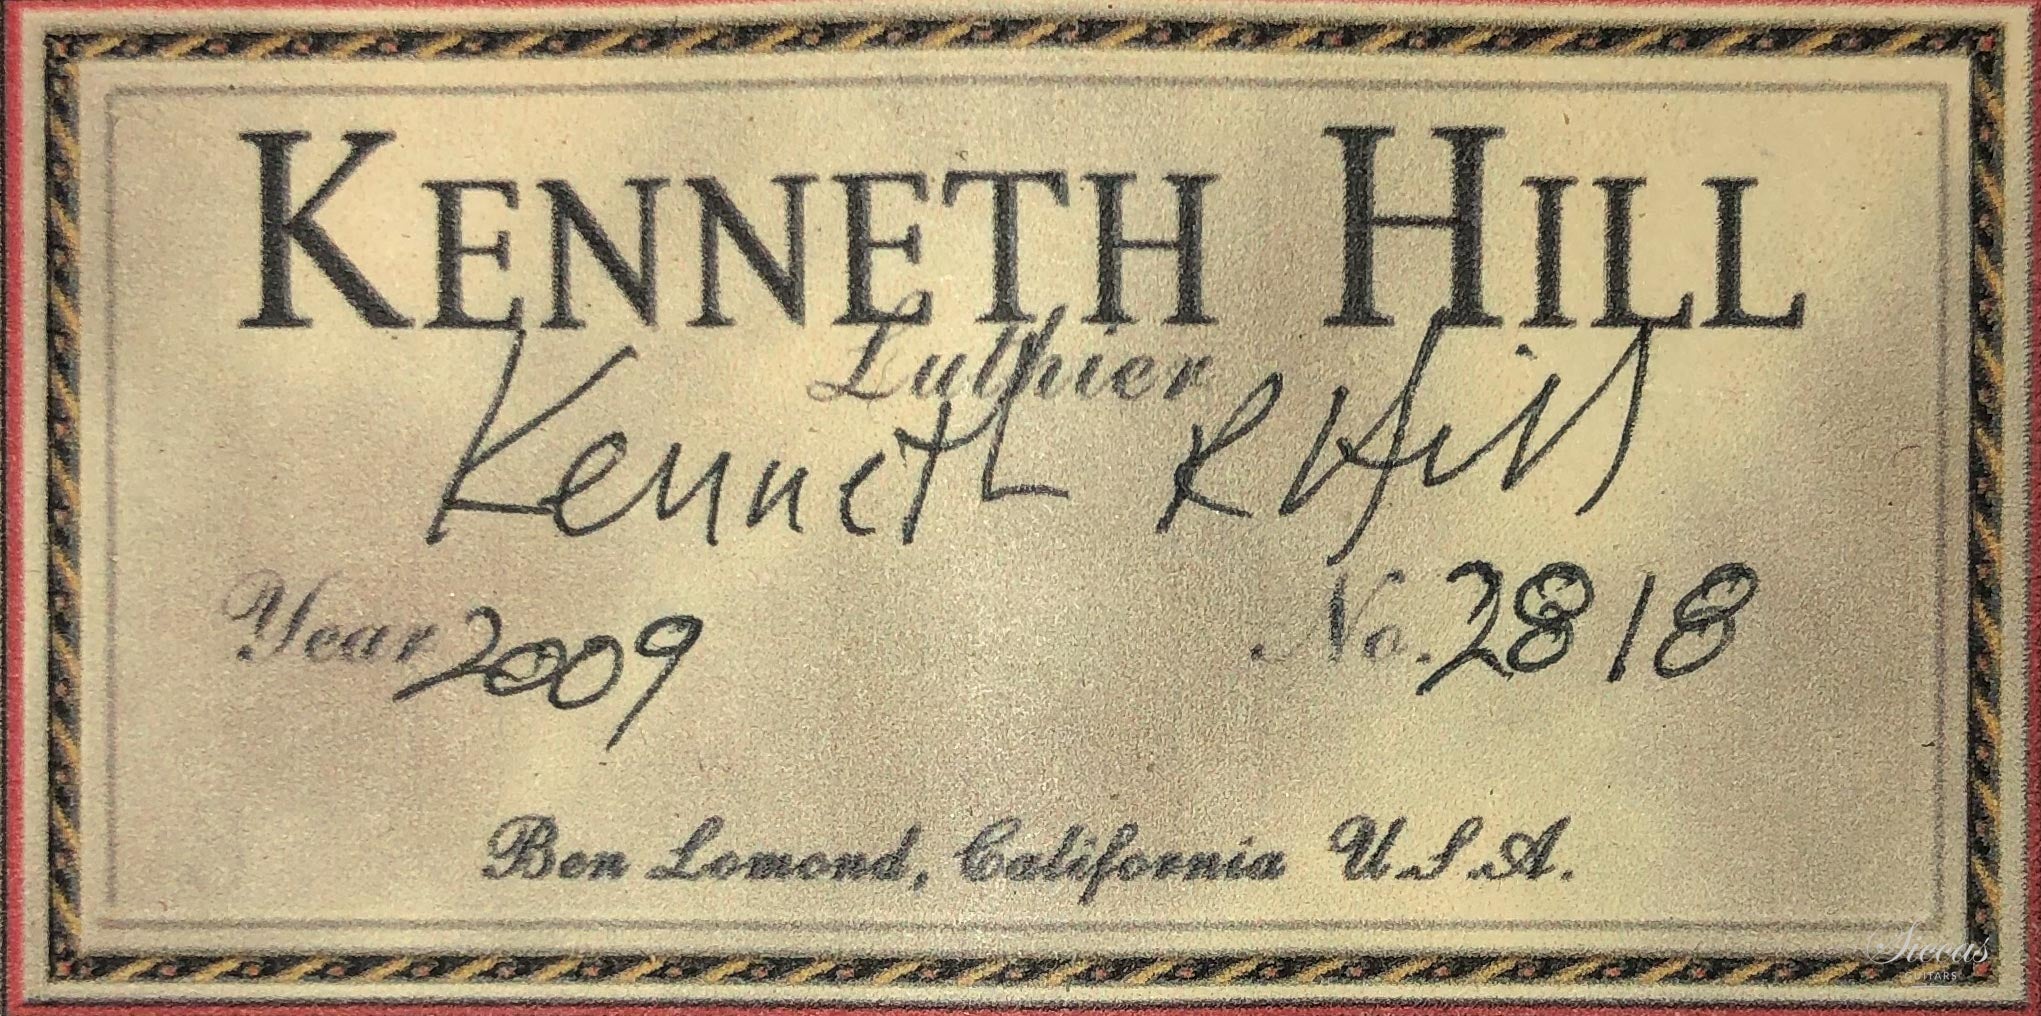 KENNETH HILL
Luthier
Kenneth R Hill
Year 2009 No. 2818
Ben Lomond, California U.S.A.
Siccas
GUITARS